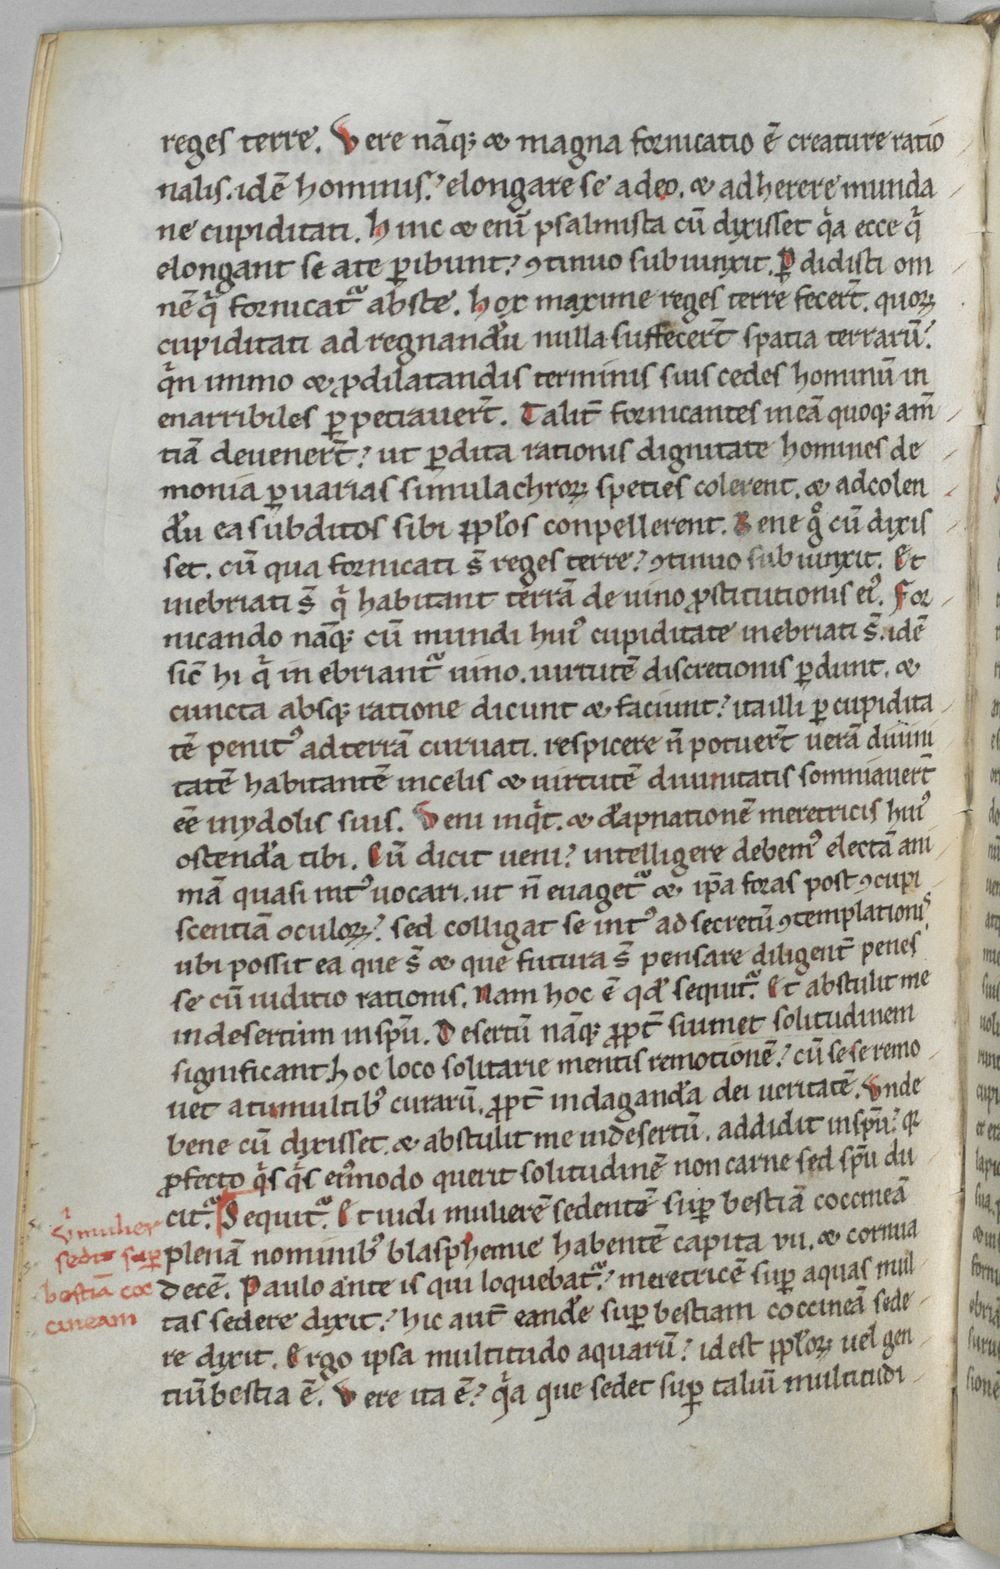 reges terre. Vere nāq; & magna fornicatio ē creature ratio
nalis. idē hominis; elongare se adeo. & adherere munda
ne cupiditati. Hinc & enī psalmista cū dixisset qͥa ecce qͥ
elongant se ate ꝑibunt; ꝯtinuo subiunxit. Pdidisti om
nē qͥ fornicatᷓ abste. Hoc maxime reges terre fecer̄t. quoꝝ
cupiditati ad regnandū nulla suffecer̄t spatia terrarū;
qͥn immo & ꝓdilatandis terminis suis cedes hominū in
enarribiles ꝑpetiaver̄t. Talit̄ fornicantes ineā quoq; am̄
tiā devener̄t; ut ꝑdita rationis dignitate homines de
monia ꝑuarias simulachroꝝ speties colerent. & adcolen
dū ea subditos sibi ꝓpłos conpellerent. Bene gͦ cū dixis
set. cū qua fornicati s̄ reges terre; ꝯtinuo subiunxit. Et
inebriati s̄ qͥ habitant terrā de uino ꝓstitutionis eiꝰ. For
nicando nāq; cū mundi huiꝰ cupiditate inebriati s̄. idē
sic̄ hi qͥ in ebriantᷓ uino. uirtutē discretionis ꝑdunt. &
cuncta absq; ratione dicunt & faciunt; ita illi ꝑ cupidita
tē penitꝰ adterrā curuati. respicere n̄ potuer̄t uerā diuini
tatē habitantē incelis & uirtutē diuinitatis somniaver̄t
eē inydolis suis. Veni inqͥt. & dapnationē meretricis huiꝰ
ostendā tibi. Cū dicit ueni; intelligere debemꝰ electā ani
mā quasi intꝰ uocari. ut n̄ euagetᷓ & ip̄a foras post ꝯcupi
scentiā oculoꝝ; sed colligat se intꝰ ad secretū ꝯtemplationis
ubi possit ea que s̄ & que futura s̄ pensare diligent̄ penes
se cū iuditio rationis. Nam hoc ē qđ sequitᷓ. Et abstulit me
in desertum inspū. Desertū nāq; ꝓpt̄ siumet solitudinem
significant hoc loco solitarie mentis remotionē; cū sese remo
uet atumultibꝰ curarū. ꝓpt̄ indagandā dei ueritatē. Vnde
bene cū dixisset. & abstulit me indesertū. addidit inspū; qꝛ
ꝓfecto qͥsqͥs eiꝰmodo querit solitudinē non carne sed spū du
citᷓ. Sequitᷓ. Et uidi mulierē sedentē suꝑ bestiā coccineā
plenā nominibꝰ blasphemie habentē capita vii. & cornua
decē. Paulo ante is qui loquebatᷓ; meretricē suꝑ aquas mul
tas sedere dixit; hic aut̄ eandē suꝑ bestiam coccineā sede
re dixit. Ergo ipsa multitudo aquarū; id est ꝓpłoꝝ uel gen
tiū bestia ē. Vere ita ē; qͥa que sedet suꝑ taliū multitudi
mulier
sedit suꝑ
bestiā coc
cineam